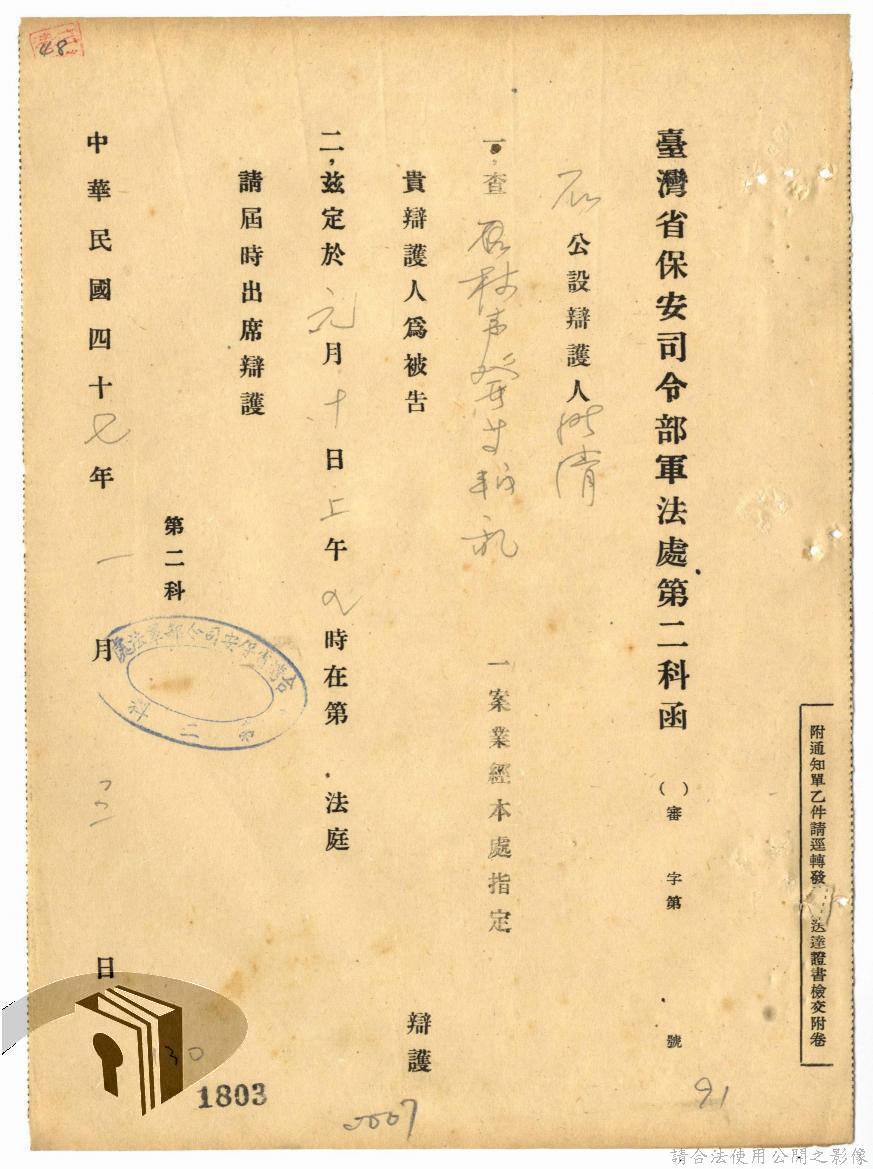 附通知單乙件請逕轉發 送達證書檢交附卷
臺灣省保安司令部軍法處第二科函
( )審 字第 號
公設辯護人 清
一,查
一案業經本處指定
貴辯護人為被告 辯護
二,茲定於元月十日上午九時在第 法庭
請屆時出席辯護
第二科
中華民國四十七年一月三日
台灣省保安司令部軍法處
第二科
48
91
30
1803
請合法使用公開之影像